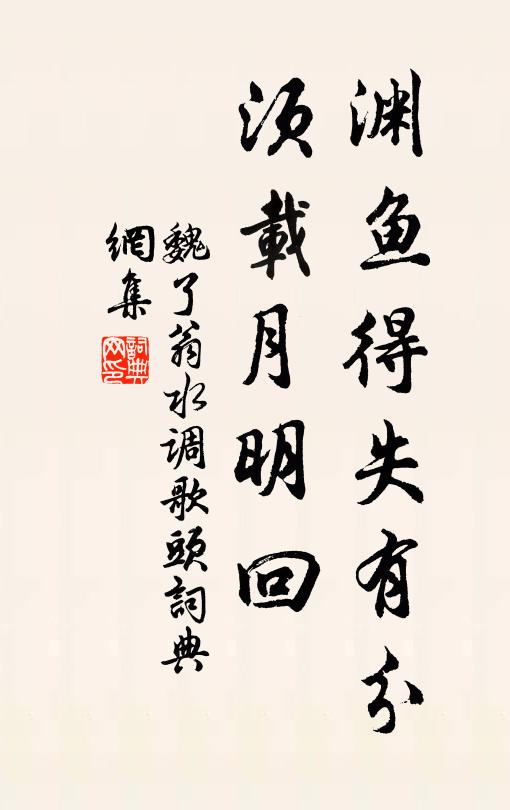 渊鱼得失有分
须载月明回
魏了翁水调歌头詞典
網集
詞典網印